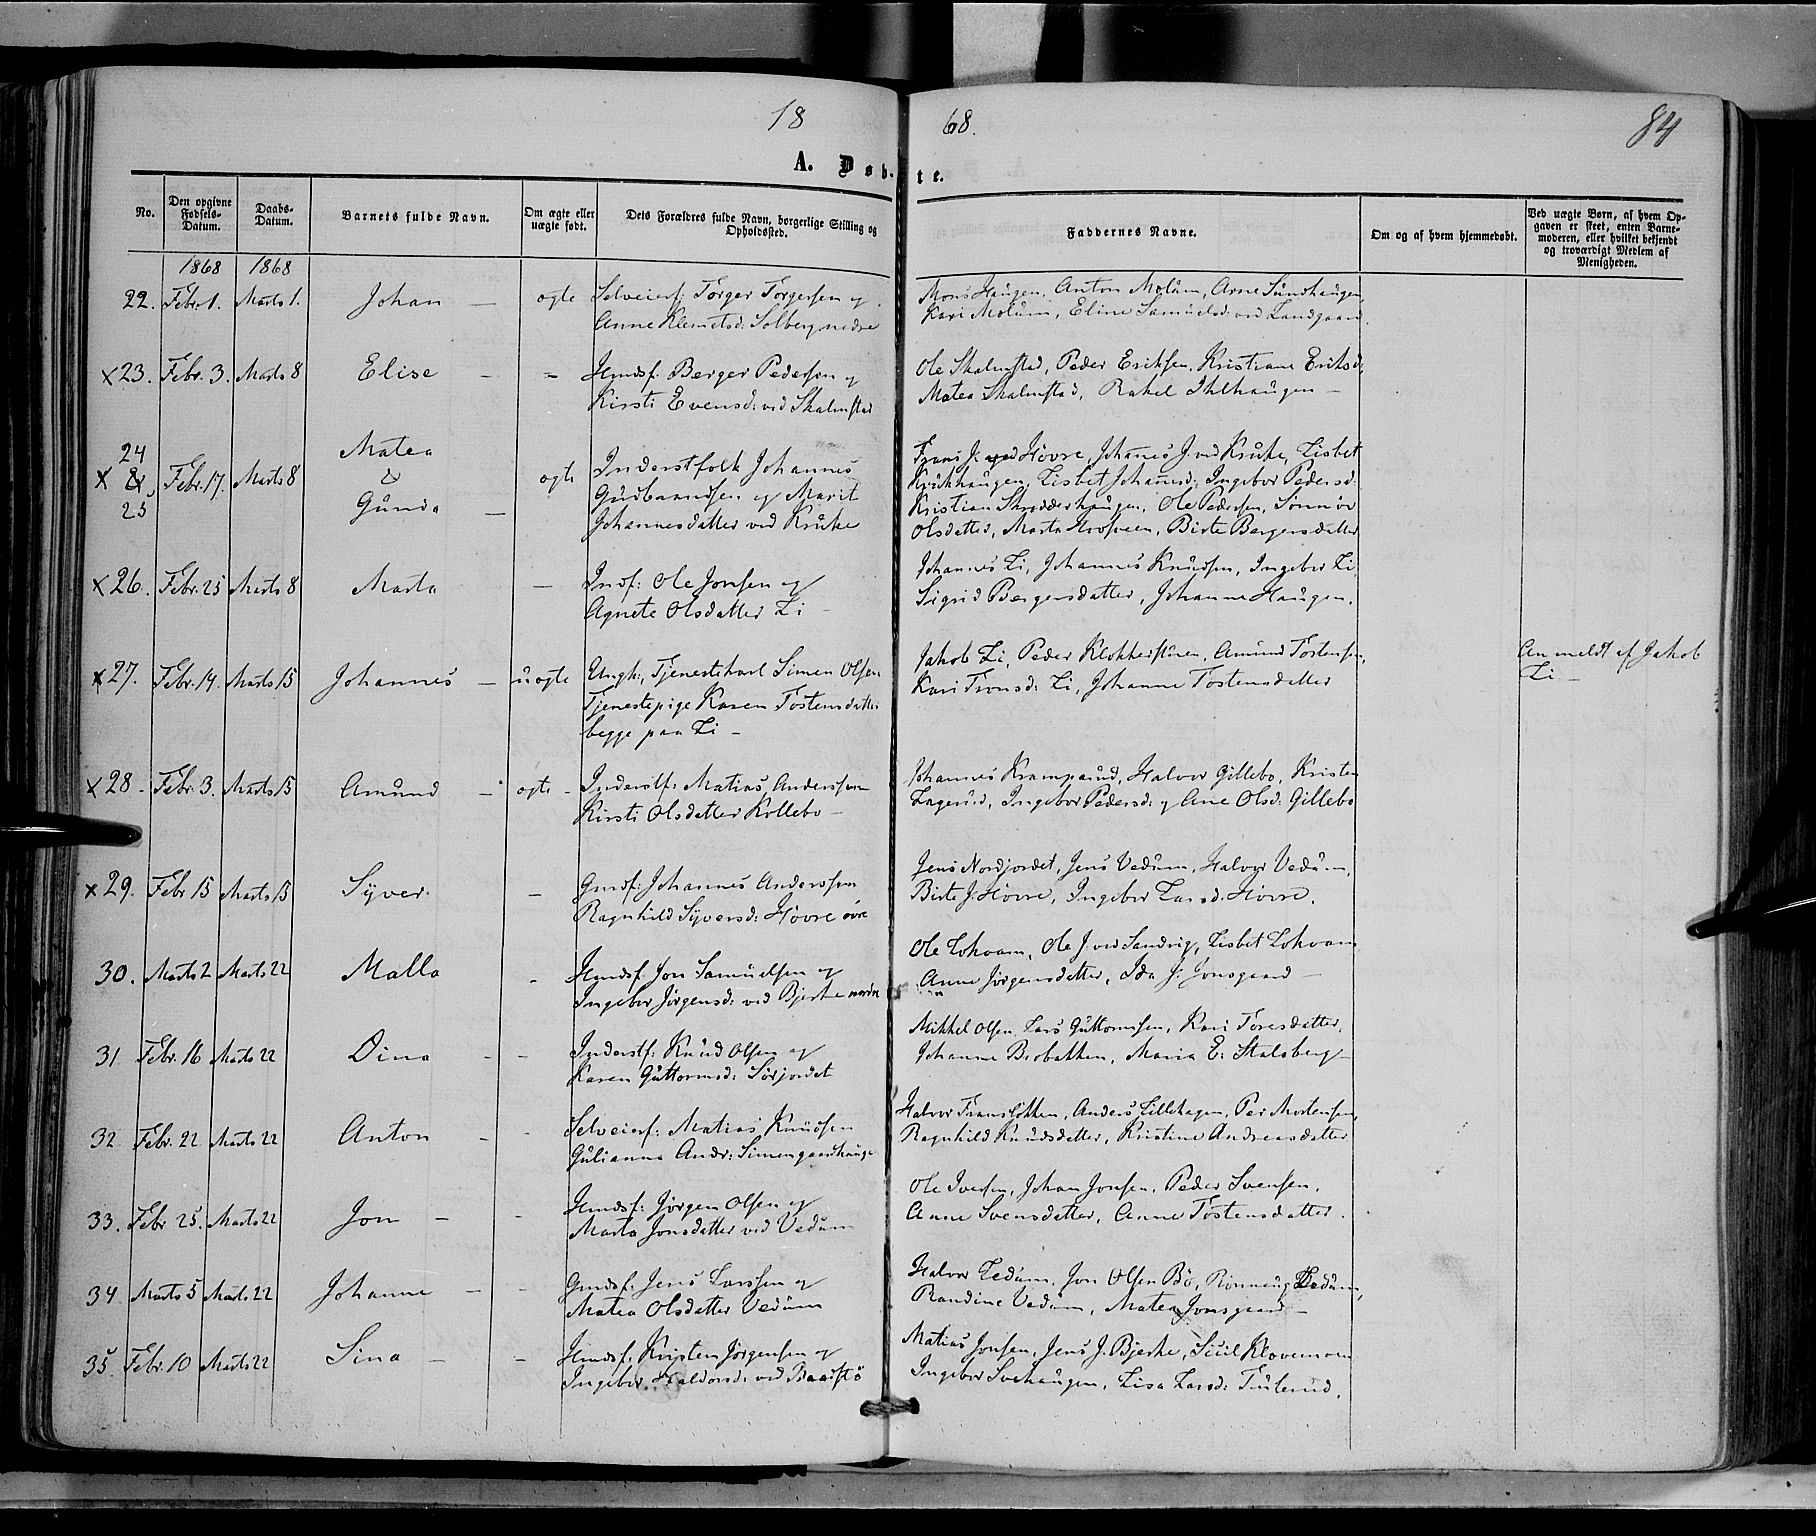 18 68. 84
A. Døb- te.
No.
Den opgivne Fødsels-Datum.
Daabs-Datum.
Barnets fulde Navn.
Om ægte eller uægte født.
Dets Forældres fulde Navn, borgerlige Stilling og Opholdssted.
Faddernes Navne.
Om og af hvem hjemmedøbt.
Ved uægte Børn, af hvem Opgaven er skeet, enten Barnemoderen, eller hvilket bekjendt og troværdigt Medlem af Menigheden.
1868 1868
22. Febr. 1. Marts 1. Johan – ægte Selveierf: Torger Torgersen og
Anne Klemetsd: Solberg nedre
Mons Haugen, Anton Molum, Arne Sundhaugen,
Kari Molum, Eline Samuelsd: ved Landgaard.
x23. Febr. 3. Marts 8 Elise – – Hmdsf: Berger Pedersen og
Kirsti Evensd: ved Skalmstad
Ole Skalmstad, Peder Eriksen, Kristiane Eriksd:
Matea Skalmstad, Rakel Ihlhaugen –
24 & 25 x Febr. 17. Marts 8 Matea & Gunda – ægte Inderstfolk Johannes
Gudbrandsen og Marit
Johannesdatter ved Kruke
Frans J: ved Hövre, Johanes J. ved Kruke, Lisbet
Krukhaugen, Lisbet Johanesd: Ingebor Pedersd:
Kristian Skrædderhaugen, Ole Pedersen, Sönnöv
Olsdatter, Marta Mosveen, Birte Bergersdatter
x26. Febr. 25 Marts 8 Marta – Indf: Ole Jonsen og
Agnete Olsdatter Li –
Johannes Li, Johannes Knudsen, Ingebor Li
Sigrid Bergersdatter, Johanne Haugen.
x27. Febr. 14. Marts 15 Johannes – uægte Ungk:, Tjenestekarl Simen Olsen
Tjenestepige Karen Tostensdatter
begge paa Li –
Jakob Li, Peder Klokkerstuen, Amund Tostensen,
Kari Fronsd: Li, Johanne Tostensdatter
Anmeldt af Jakob
Li –
x28 – Febr. 3. Marts 15 Amund – ægte – Inderstf: Matias Anderssen
Kirsti Olsdatter Kollebo –
Johannes Kramperud, Halvor Gillebo, Kristen
Lagerud, Ingebor Pedersd: og Ane Olsd: Gillebo
x29. Febr 15 Marts 15 Syver. – Gmdsf: Johannes Anderssen
Ragnhild Syversd: Hövre övre
Jens Nordjordet, Jens Vedum, Halvor Vedum,
Birte J: Hövre, Ingebor Larsd: Hövre.
30. Marts 2 Marts 22 Malla – Hmdsf: Jon Samuelsen og
Ingebor Jörgensd: ved Bjerke nordre
Ole Lokvam, Ole J. ved Sandvig, Lisbet Lokvam
Anne Jörgensdatter, Ida J: Jonsgaard –
31 Febr. 16 Marts 22 Dina – – Inderstf: Knud Olsen og
Karen Guttormsd: Sörjordet
Mikkel Olsen, Lars Guttormsen, Kari Toresdatter,
Johanne Brobakken, Maria E: Stalsberg –
32 Febr. 22 Marts 22 Anton – – Selveierf: Matias Knudsen
Gulianna Andr: Simengaardhauge
Halvor Franslökken, Anders Lillehagen, Per Mortensen,
Ragnhild Knudsdatter, Kristine Andreasdatter
33. Febr 25. Marts 22 Jon – – Hmdsf: Jörgen Olsen og
Marta Jonsdatter ved Vedum
Ole Iversen, Johan Jonsen, Peder Svensen,
Anne Svensdatter, Anne Tostensdatter.
34 Marts 5 Marts 22 Johanne – – Gmdsf: Jens Larssen og
Matea Olsdatter Vedum
Halvor Vedum, Jon Olsen Bö, Rönnaug Vedum,
Randine Vedum, Matea Jonsgaard –
35. Febr. 10 Marts 22 Sina – – Hmdsf: Kristen Jörgensen og
Ingebor Haldorsd: ved Baarstö
Matias Jonsen, Jens J. Bjerke, Sicil Klovemoen
Ingebor Svehaugen, Lisa Larsd: Tulerud.